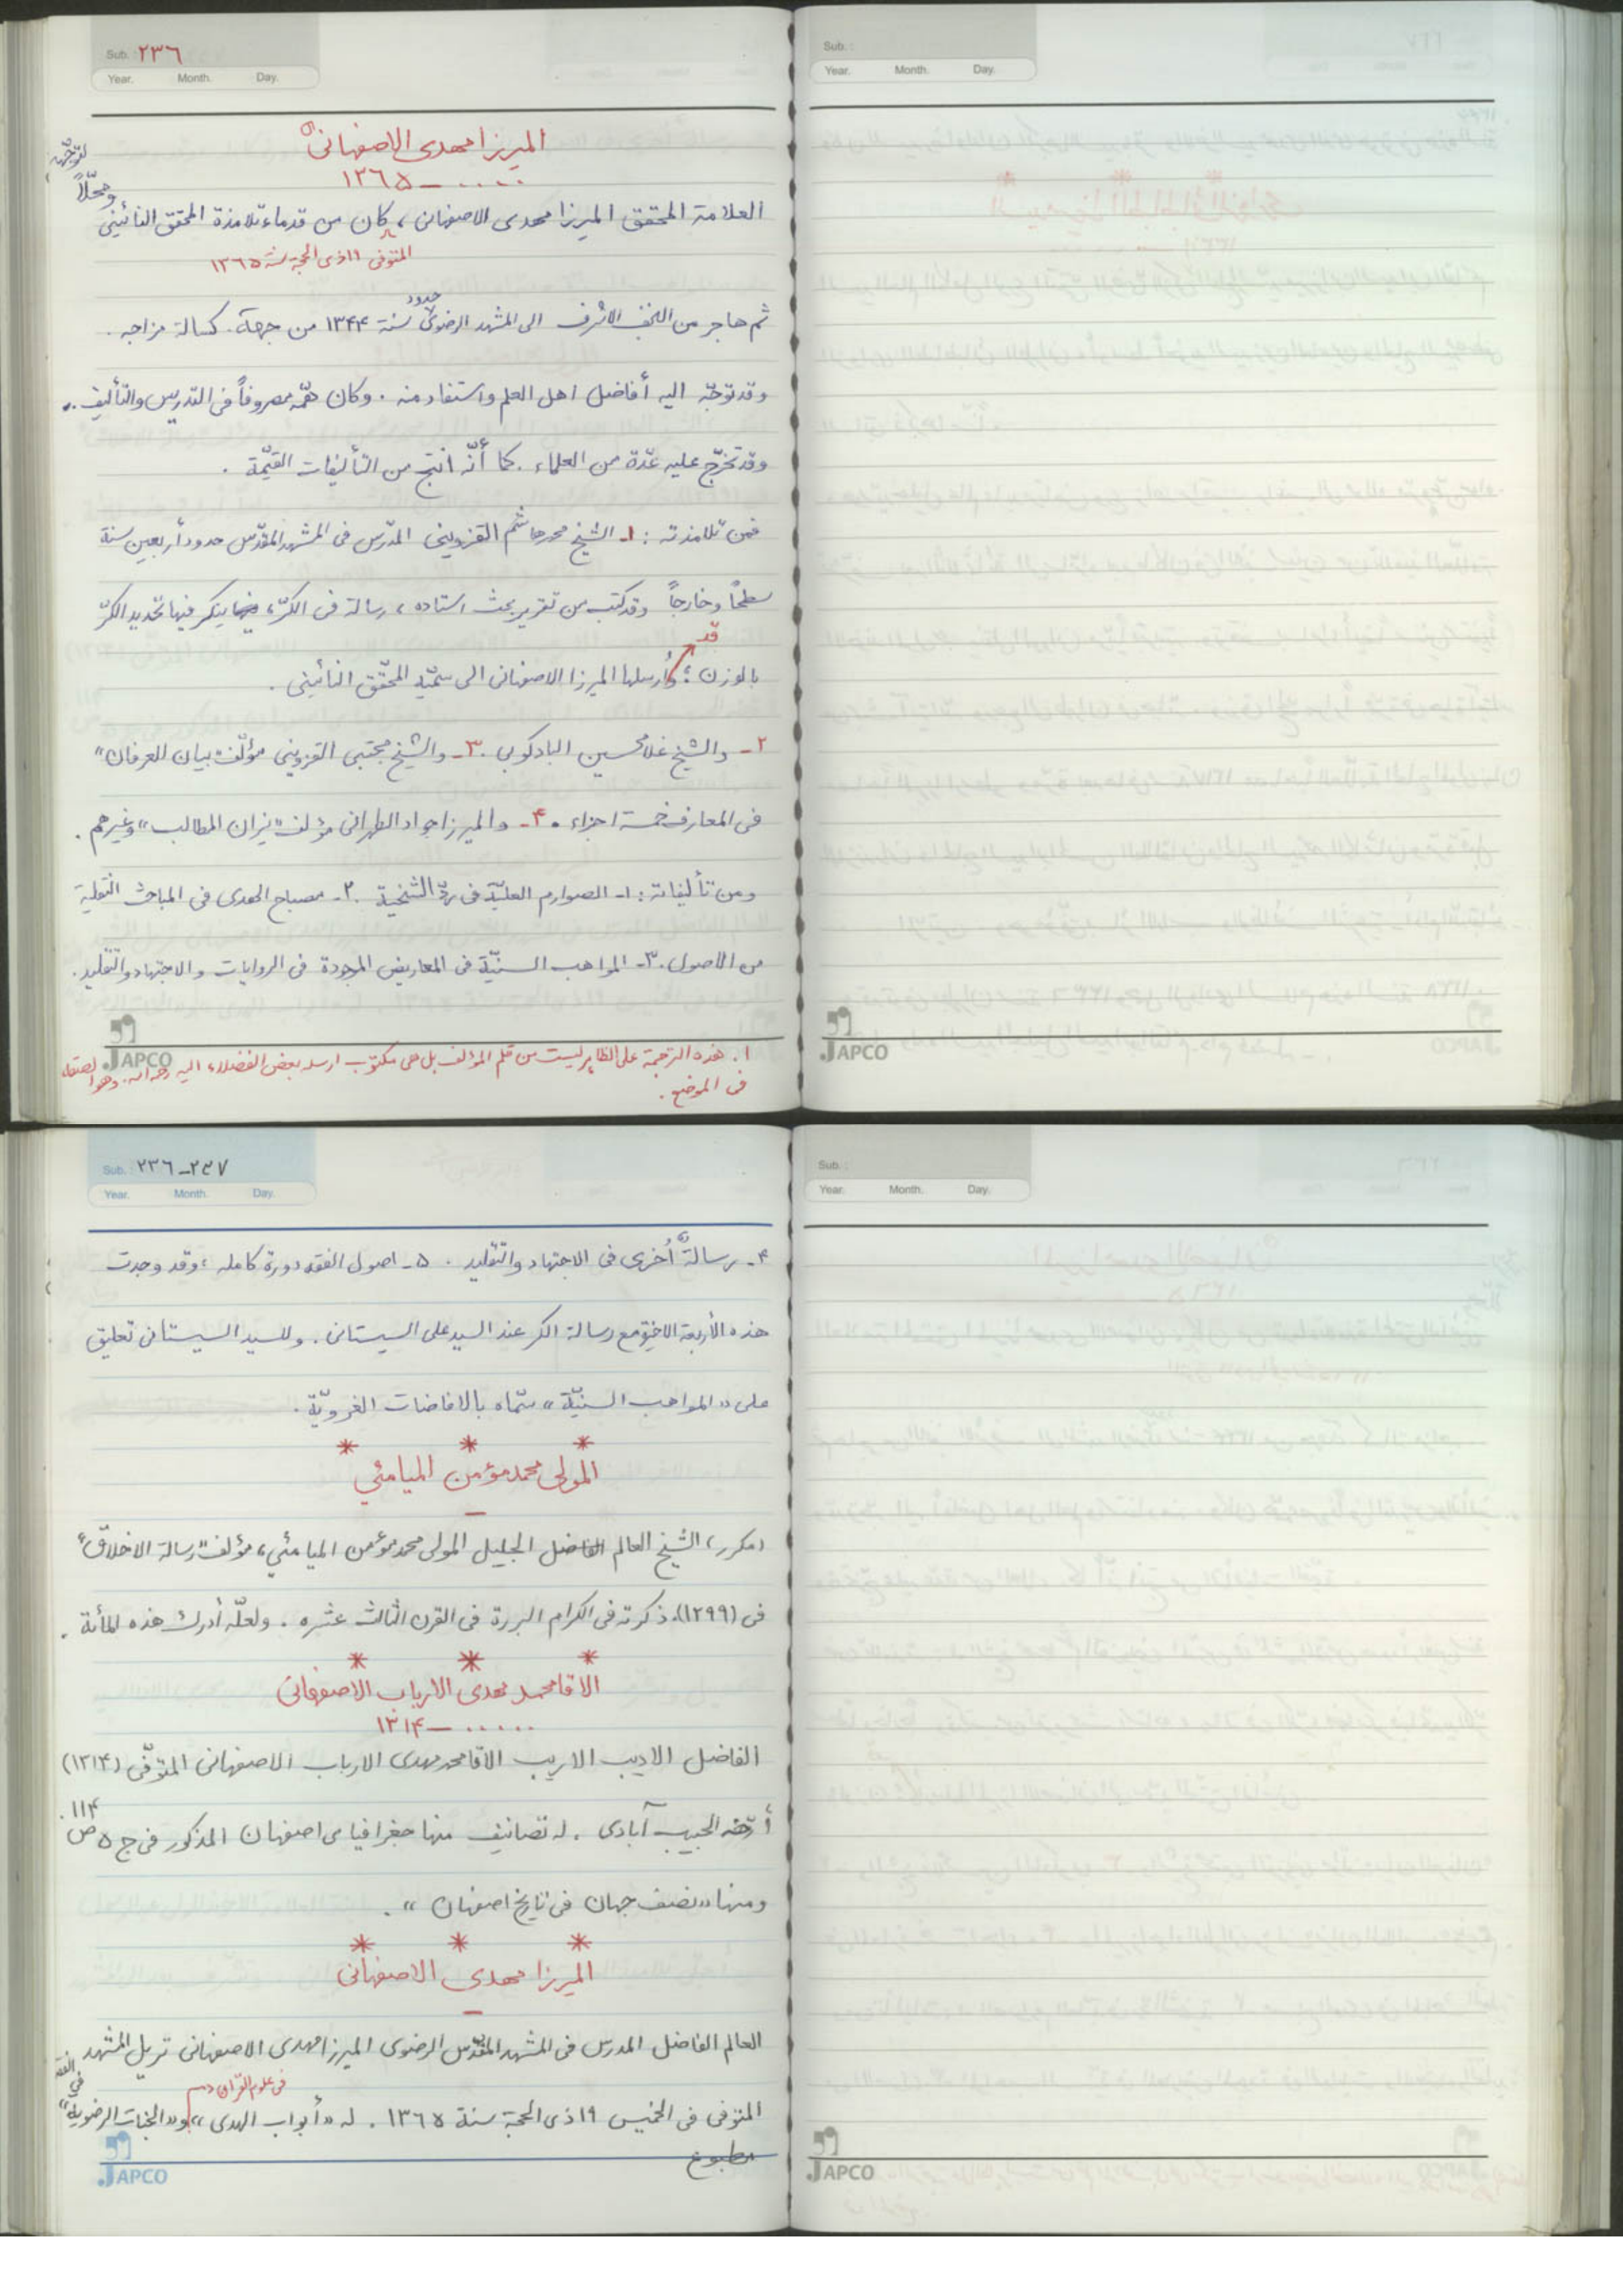 Sub. : ٢٣٦
Year. Month. Day.
الميرزا مهدی الاصفهانی
..... ــ ١٣٦٥
العلامة المحقق الميرزا مهدی الاصفهانی، كان من قدماء تلامذة المحقق النائينی
ومحلّاً
لتوجّهه
المتوفی ١٩ ذی الحجة سنة ١٣٦٥
ثم هاجر من النجف الاشرف الی المشهد الرضوی حدود سنة ١٣۴۴ من جهة كسالة مزاجه .
وقد توجّه اليه أفاضل اهل العلم واستفاد منه . وكان همّه مصروفاً فی التدريس والتأليف .
وقد تخرّج عليه عدّة من العلماء . كما أنّه انتج من التأليفات القيّمة .
فمن تلامذته : ١ـ الشيخ محمد هاشم القزوينی المدرّس فی المشهد المقدّس حدود أربعين سنة
سطحاً وخارجاً وقد كتب من تقرير بحث استاده ، رسالة فی الكرّ، ينكر فيها تحديد الكرّ
بالوزن ؛ وقد أرسلها الميرزا الاصفهانی الی سميّه المحقّق النائينی .
٢ـ والشيخ غلامحسين البادكوبی . ٣ـ والشيخ مجتبی القزوينی مؤلّف "بيان الفرقان"
فی المعارف خمسة اجزاء . ۴ـ والميرزا جواد الطهرانی مؤلف "ميزان المطالب" وغيرهم .
ومن تأليفاته : ١ـ الصوارم العليّة فی ردّ الشيخية . ٢ـ مصباح الهدی فی المباحث النقلية
من الاصول . ٣ـ المواهب السنيّة فی المعاريض الموجودة فی الروايات والاجتهاد والتقليد .
JAPCO
١. هذه الترجمة علی الظاهر ليست من قلم المؤلف بل هی مكتوب ارسله بعض الفضلاء اليه رحمه الله وهو الصقه
فی الموضع .
Sub. :
Year. Month. Day.
JAPCO
Sub. : ٢٣٦ـ٢٣٧
Year. Month. Day.
۴ـ رسالةٌ أُخری فی الاجتهاد والتقليد . ٥ـ اصول الفقه دورة كامله ، وقد وجدت
هذه الأربعة الاخيرة مع رسالة الكر عند السيد علی السيستانی . وللسيد السيستانی تعليق
علی «المواهب السنيّة» سمّاه بالافاضات الغرويّة .
* * *
المولی محمد مؤمن الميامئي
ــ
(مكرر) الشيخ العالم الفاضل الجليل المولی محمد مؤمن الميامئي، مؤلف "رسالة الاخلاق"
فی (١٢٩٩). ذكرته فی الكرام البررة فی القرن الثالث عشره . ولعلّه أدرك هذه المأة .
* * *
الاقا محمد مهدی الارباب الاصفهانی
..... ــ ١٣١۴
الفاضل الاديب الاريب الاقا محمد مهدی الارباب الاصفهانی المتوفّی (١٣١۴)
أرّخه الحبيب آبادی . له تصانيف منها جغرافيای اصفهان المذكور فی ج ٥ ص ١١۴ .
ومنها «نصف جهان فی تاريخ اصفهان» .
* * *
الميرزا مهدی الاصفهانی
ــ
العالم الفاضل المدرس فی المشهد المقدّس الرضوی الميرزا مهدی الاصفهانی نزيل المشهد
المتوفی فی الخميس ١٩ ذی الحجة سنة ١٣٦٥ . له «أبواب الهدی» فی علوم القرآن و«الجنات الرضوية» فی الفقه
مطبوع
JAPCO
Sub. :
Year. Month. Day.
JAPCO